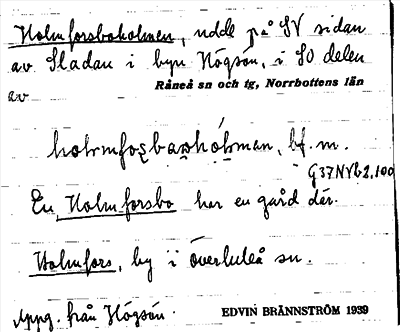 Holmforsboholmen, udde på SV sidan
av Sladan i byn Högsön, i SO delen
Råneå sn och tg, Norrbottens län
av
bf. m.
G37NVb2,100
En Holmforsbo har en gård där.
Holmfors, by i överluleå sn.
Uppg. från Högsön.
EDVIN BRÄNNSTRÖM 1939